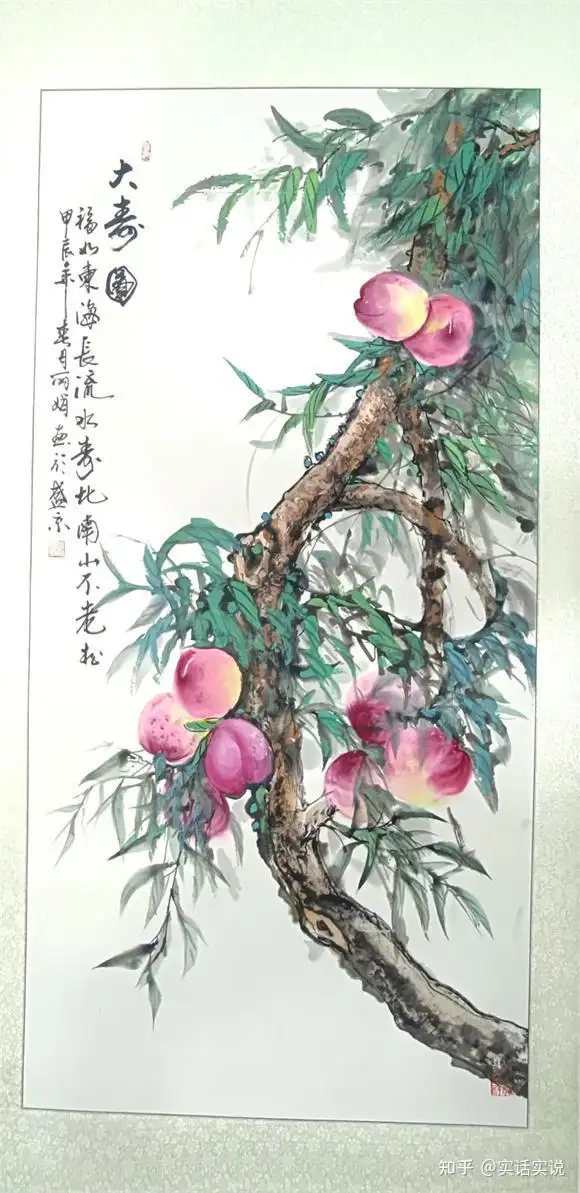 大寿圖
福如東海長流水寿比南山不老松
甲辰年春月丽娟画於盛京
知乎 @实话实说